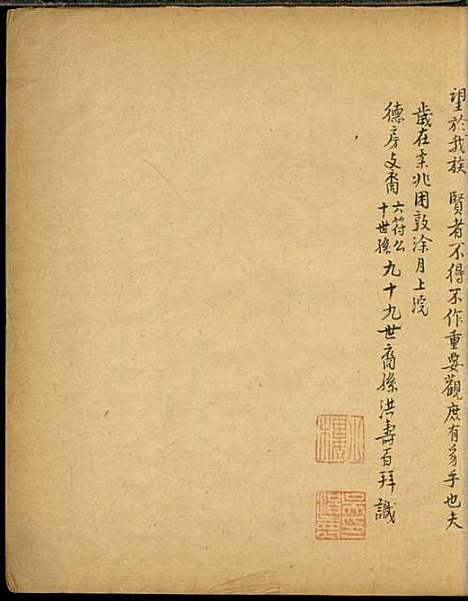 望於我族 賢者不得不作重要觀庶有豸乎也夫
歲在柔兆困敦涂月上浣
德房支裔六符公十世孫九十九世裔孫洪壽百拜識